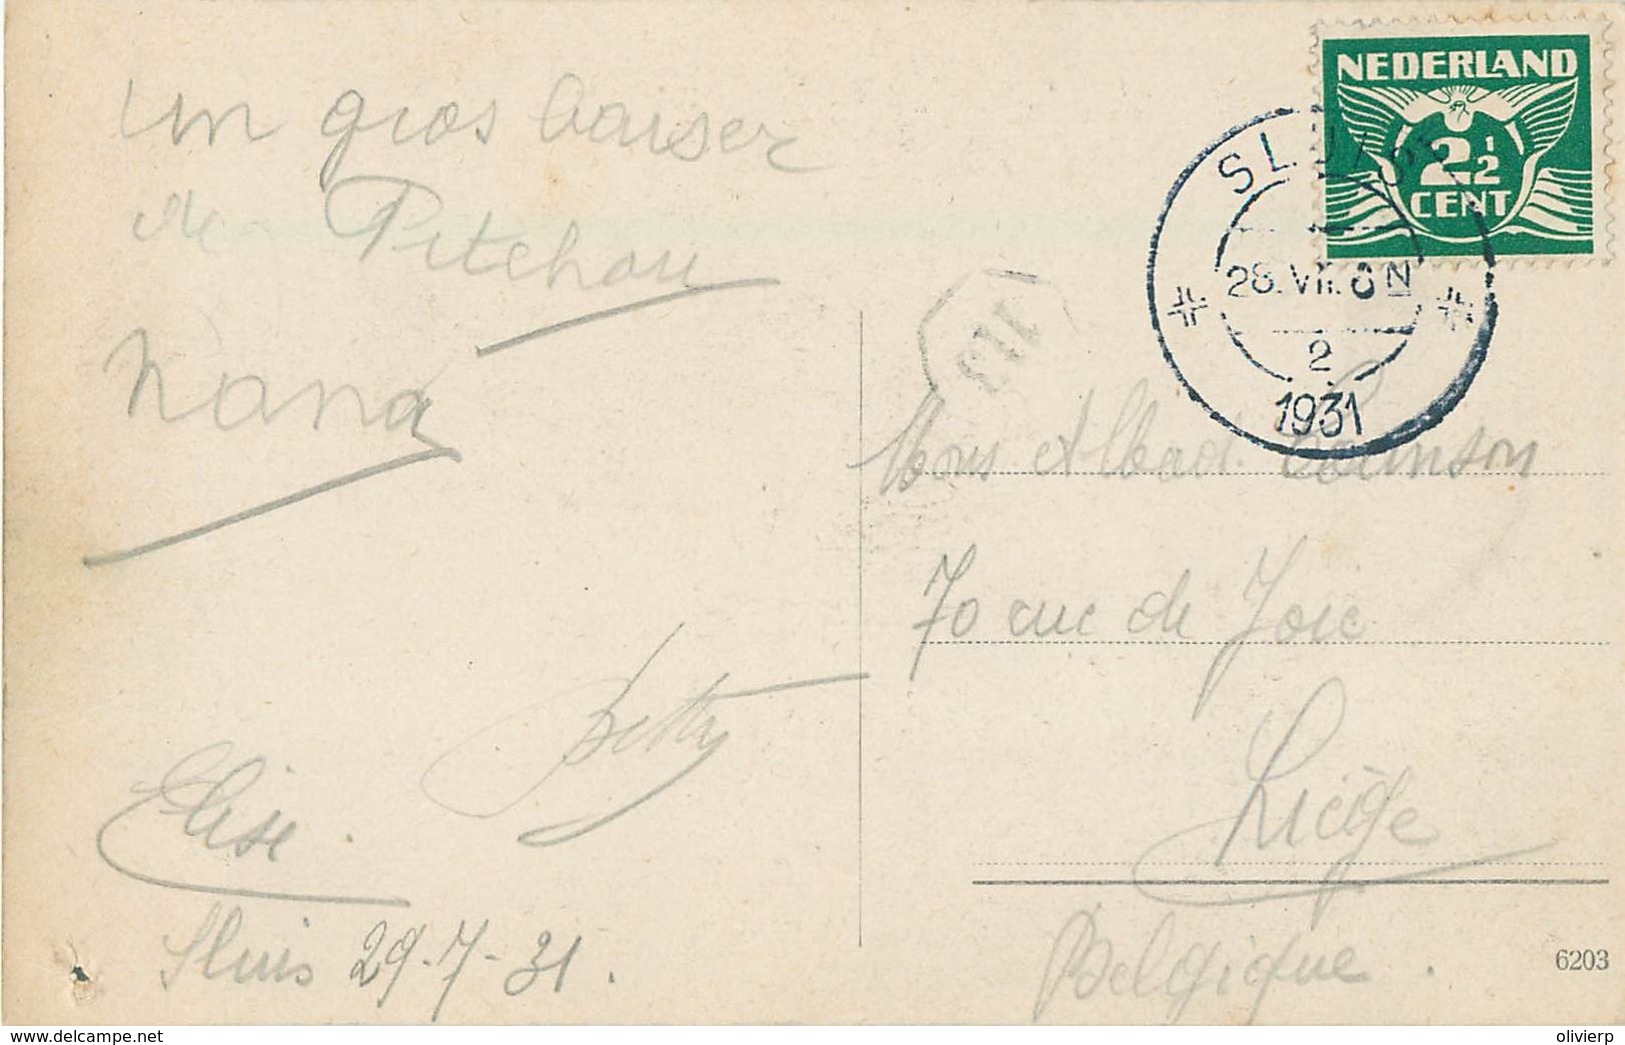 un gros baiser
de Pitchou
Nana
Betty
Elise.
Sluis 29-7-31.
NEDERLAND
2½
CENT
SLUIS
28.VII. 6N
2
1931
113
Mons Albert
70 rue de Joie
Liège
Belgique.
6203
www.delcampe.net
olivierp